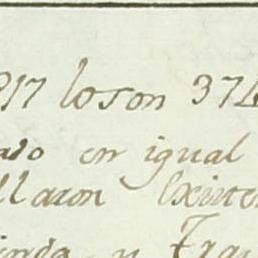 917 loson 374
ado en igual
llaron Existen
ienda y Fra